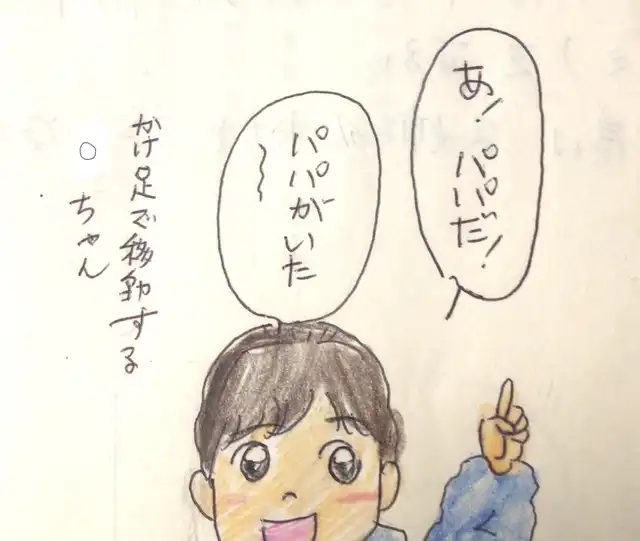 あ!パパだ!
パパがいた
〜
かけ足で移動する
○ちゃん